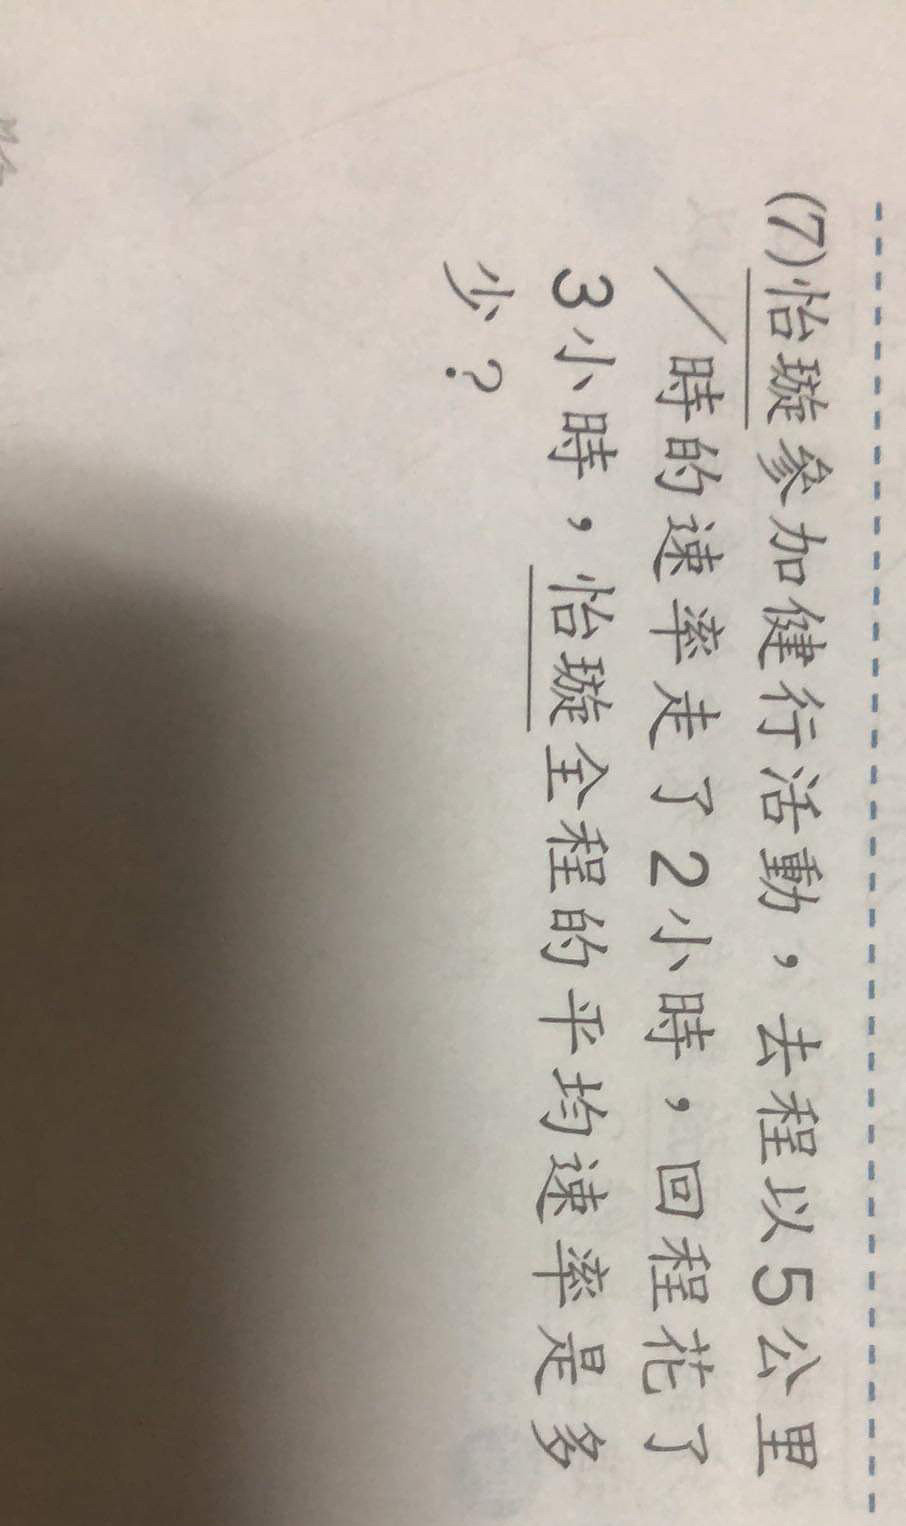 (7)怡璇參加健行活動，去程以5公里
／時的速率走了2小時，回程花了
3小時，怡璇全程的平均速率是多
少？